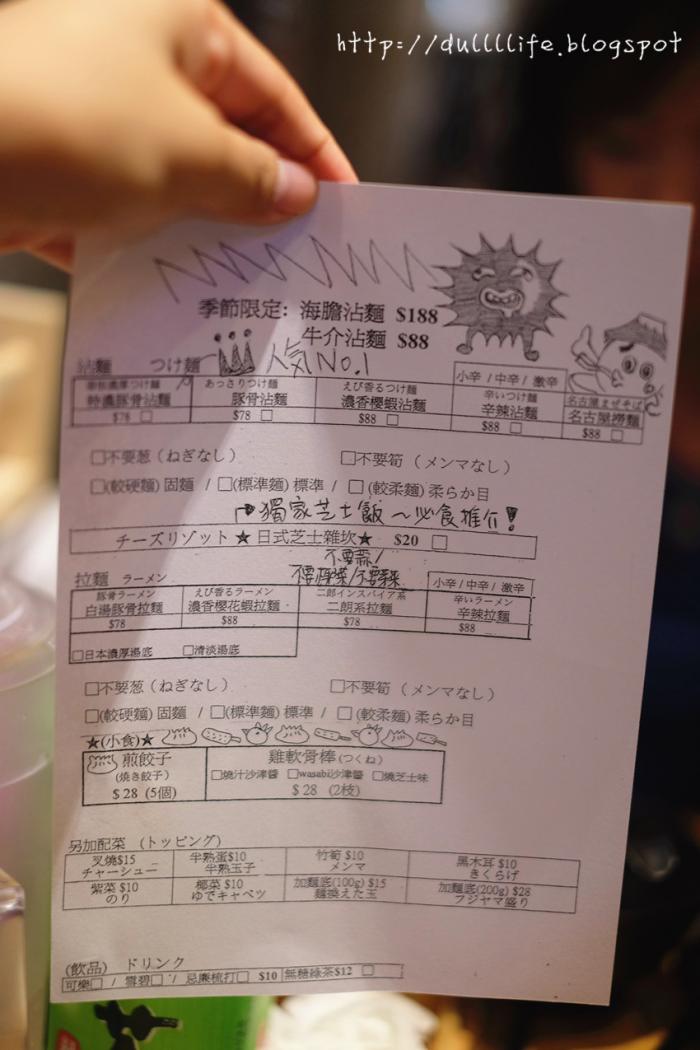 http://dullllife.blogspot
季節限定: 海膽沾麵 $188
牛介沾麵 $88
沾麵 つけ麺 人気No.1
小辛 / 中辛 / 激辛
特濃豚骨沾麵 $78 □
あっさりつけ麺 豚骨沾麵 $78 □
えび香るつけ麺 濃香櫻蝦沾麵 $88 □
辛いつけ麺 辛辣沾麵 $88 □
名古屋まぜそば 名古屋撈麵 $88 □
□不要葱 (ねぎなし) □不要筍 (メンマなし)
□(較硬麵) 固麺 / □(標準麵) 標準 / □ (較柔麵) 柔らか目
獨家芝士飯~必食推介!
チーズリゾット ★ 日式芝士雜炊★ $20 □
不要蒜/
拉麵 ラーメン
小辛 / 中辛 / 激辛
豚骨ラーメン 白湯豚骨拉麵 $78
えび香るラーメン 濃香櫻花蝦拉麵 $88
二郎インスパイア系 二朗系拉麵 $78
辛いラーメン 辛辣拉麵 $88
□日本濃厚湯底 □清淡湯底
□不要葱 (ねぎなし) □不要筍 (メンマなし)
□(較硬麵) 固麺 / □(標準麵) 標準 / □ (較柔麵) 柔らか目
★(小食)★
煎餃子 (焼き餃子) $28 (5個)
雞軟骨棒 (つくね)
□燒汁沙津醬 □wasabi沙津醬 □燒芝士味
$28 (2枝)
另加配菜 (トッピング)
叉燒$15 チャーシュー
半熟蛋$10 半熟玉子
竹筍 $10 メンマ
黑木耳 $10 きくらげ
紫菜 $10 のり
椰菜 $10 ゆでキャベツ
加麵底(100g) $15 麺換えた玉
加麵底(200g) $28 フジヤマ盛り
(飲品) ドリンク
可樂□ / 雪碧□ / 忌廉梳打□ $10 無糖綠茶$12 □